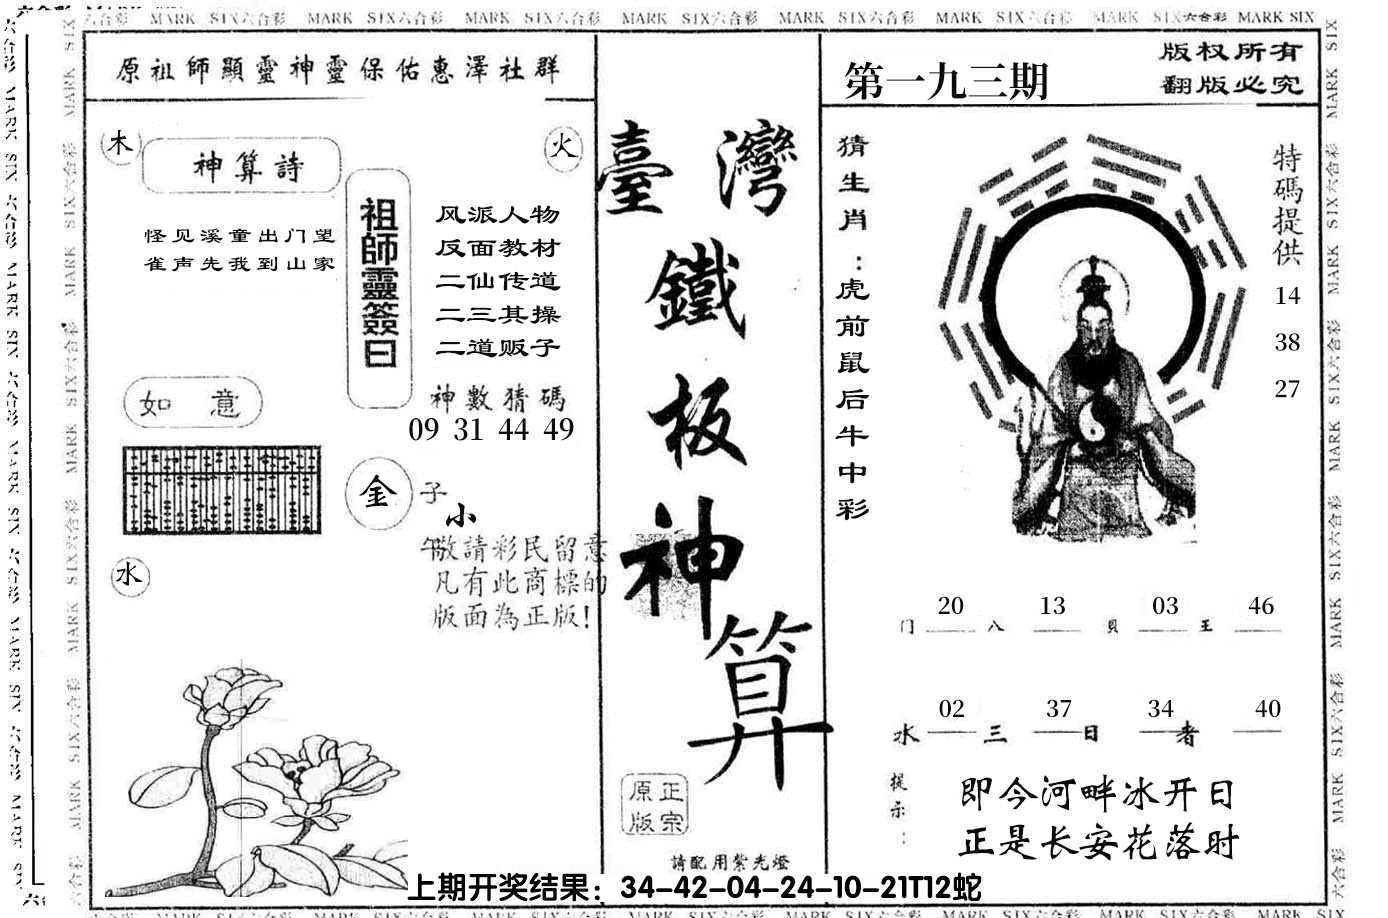 MARK SIX六合彩 MARK SIX六合彩 MARK SIX六合彩 MARK SIX六合彩 MARK SIX六合彩 MARK SIX六合彩 MARK SIX六合彩 MARK SIX
原祖師顯靈神靈保佑惠澤社群
木
火
神算詩
怪见溪童出门望
雀声先我到山家
祖師靈簽曰
风派人物
反面教材
二仙传道
二三其操
二道贩子
神數猜碼
09 31 44 49
如 意
金
子
小
午
敬請彩民留意
凡有此商標的
版面為正版!
水
臺灣
鐵
板
神
算
正宗
原版
請配用紫光燈
第一九三期
版权所有
翻版必究
猜生肖:虎前鼠后牛中彩
特碼提供
14
38
27
20 13 03 46
门 八 貝 王
02 37 34 40
水 三 日 者
提示:
即今河畔冰开日
正是长安花落时
上期开奖结果：34-42-04-24-10-21T12蛇